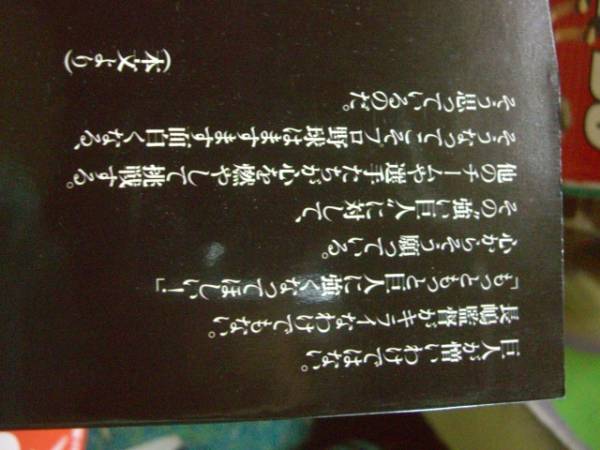 巨人が憎いわけではない。
長嶋監督がキライなわけでもない。
「もっともっと巨人に強くなってほしい！」
心からそう願っている。
その“強い巨人”に対して、
他のチームや選手たちが心を燃やして挑戦する。
そうなってこそプロ野球はますます面白くなる。
そう思っているのだ。
(本文より)